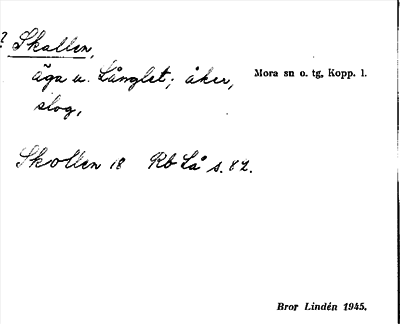 ? Skallen,
äga u. Långlet; åker,
slog,
Mora sn o. tg, Kopp. l.
Skollen 18 Rb Lå s. 82.
Bror Lindén 1945.